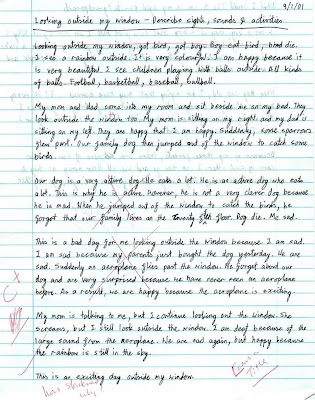 9/1/01
Looking outside my window - Describe sights, sounds & activities
Looking outside my window, got bird, got boy. Boy eat bird, bird die.
I see a rainbow outside. It is very colourful. I am happy because it
is very beautiful. I see children playing with balls outside. All kinds
of balls. Football, basketball, baseball, ballball.
My mom and dad come into my room and sit beside me on my bed. They
look outside the window too. My mom is sitting on my right and my dad is
sitting on my left. They are happy that I am happy. Suddenly, some sparrows
flew past. Our family dog then jumped out of the window to catch some
birds.
Our dog is a very active dog. He eats a lot. He is an active dog who eats
a lot. This is why he is active. However, he is not a very clever dog because
he is mad. When he jumped out of the window to catch the birds, he
forgot that our family lives on the twenty floor. Dog die. Me sad.
This is a bad day for me looking outside the window because I am sad.
I am sad because my parents just bought the dog yesterday. He are
sad. Suddenly an aeroplane flies past the window. We forget about our
dog and are very surprised because we have never seen an aeroplane
before. As a result, we are happy because the aeroplane is exciting.
My mom is talking to me, but I continue looking out the window. She
screams, but I still look outside the window. I am deaf because of the
large sound from the aeroplane. We are sad again, but happy because
the rainbow is still in the sky.
This is an exciting day outside my window.
C+